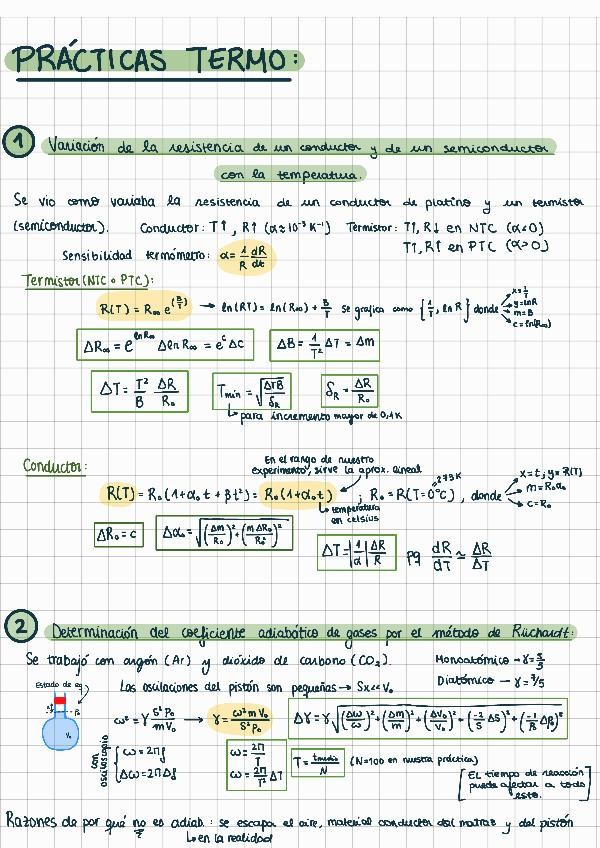 PRÁCTICAS TERMO:
1 Variación de la resistencia de un conductor y de un semiconductor
con la temperatura.
Se vio como variaba la resistencia de un conductor de platino y un termistor
(semiconductor). Conductor: T↑, R↑ (α≈10⁻³ K⁻¹) Termistor: T↑, R↓ en NTC (α<0)
T↑, R↑ en PTC (α>0)
Sensibilidad termómetro: α = 1/R dR/dt
Termistor (NTC o PTC):
R(T) = R∞ e^(B/T) → ln(RT) = ln(R∞) + B/T se grafica como {1/T, ln R} donde
x = 1/T
y = lnR
m = B
c = ln(R∞)
ΔR∞ = e^(lnR∞) Δln R∞ = e^c Δc
ΔB = 1/T² ΔT = Δm
ΔT = T²/B ΔR/R₀
Tmín = √(ΔTB/δR)
δR = ΔR/R₀
para incremento mayor de 0,1K
Conductor:
En el rango de nuestro
experimento, sirve la aprox. lineal
R(T) = R₀(1+α₀t + βt²) = R₀(1+α₀t) ; R₀ = R(T=0°C), donde
273K
x = t; y = R(T)
m = R₀α₀
c = R₀
temperatura
en celsius
ΔR₀ = c
Δα₀ = √((Δm/R₀)² + (mΔR₀/R₀²)²)
ΔT = |1/α| ΔR/R pq dR/dT ≃ ΔR/ΔT
2 Determinación del coeficiente adiabático de gases por el método de Rüchardt:
Se trabajó con argón (Ar) y dióxido de carbono (CO₂).
Monoatómico → γ = 5/3
Diatómico → γ = 7/5
Estado de eq
V₀
Las oscilaciones del pistón son pequeñas → Sx<<V₀
ω² = γ S²P₀/mV₀ → γ = ω²mV₀/S²P₀
Δγ = γ √((Δω/ω)² + (Δm/m)² + (ΔV₀/V₀)² + (-2/S ΔS)² + (-1/P₀ ΔP₀)²
con
osciloscopio
ω = 2πf
Δω = 2πΔf
ω = 2π/T
ω = 2π/T² ΔT
T = tmedio/N (N=100 en nuestra práctica)
[El tiempo de reacción
puede afectar a todo
esto.]
Razones de por qué no es adiab: se escapa el aire, material conductor del matraz y del pistón
en la realidad